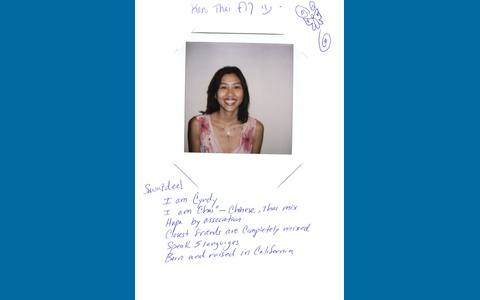 Kon Thai
Sawatdee!
I am Cyndy
I am "Chai" – Chinese, Thai mix
Hapa by association
Closest friends are completely mixed
Speak 5 languages
Born and raised in California